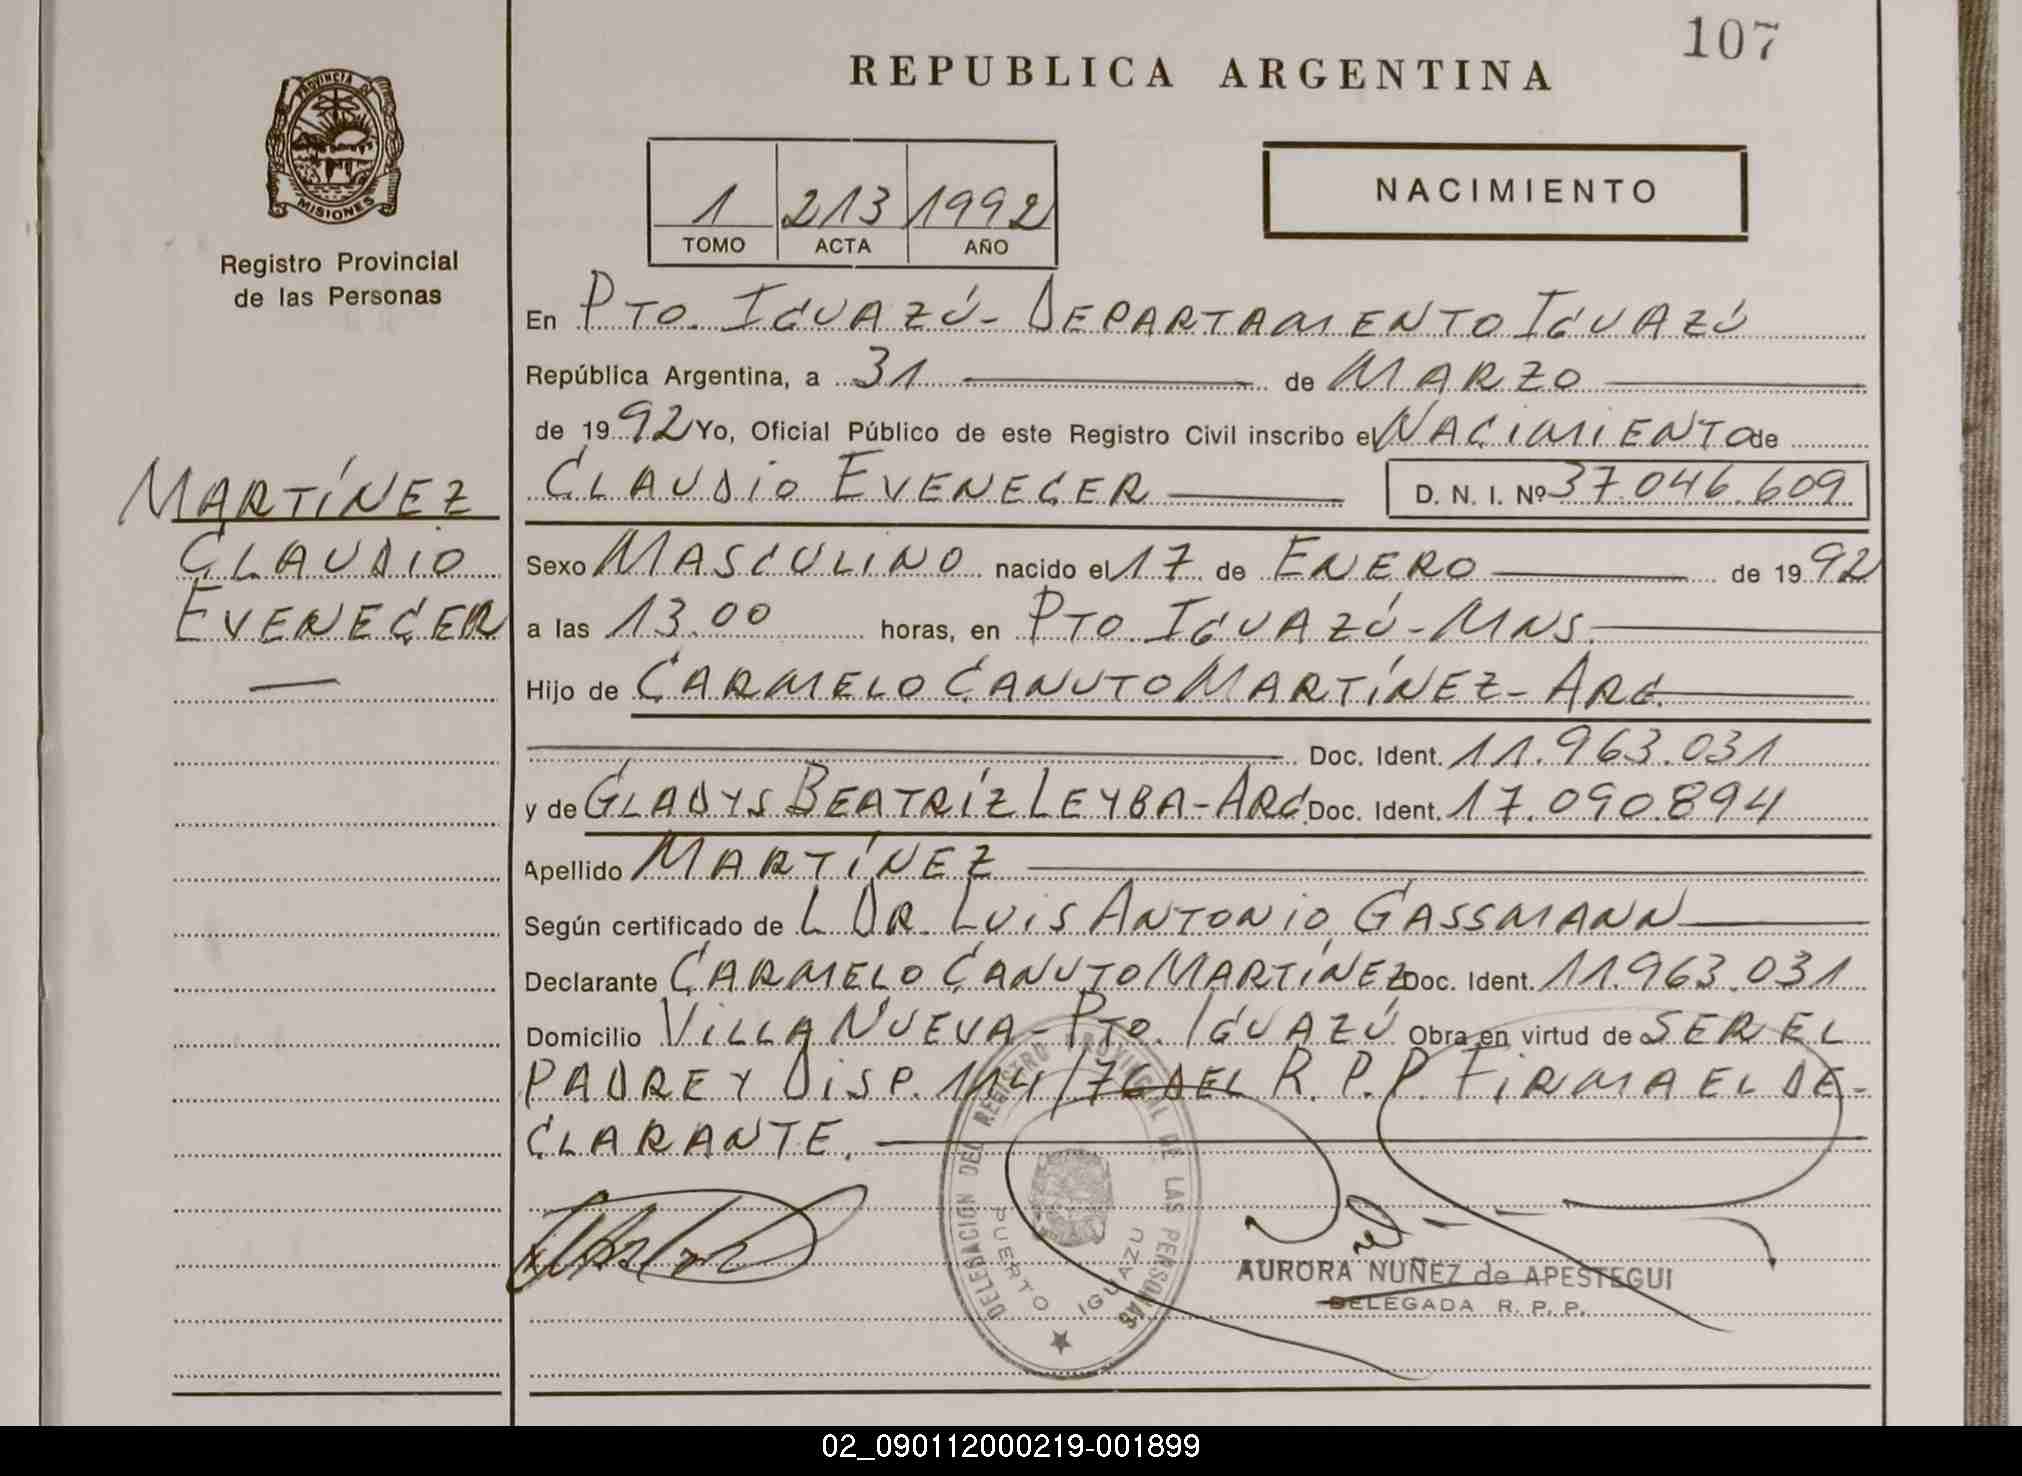 107
REPUBLICA ARGENTINA
PROVINCIA DE
MISIONES
Registro Provincial
de las Personas
1 213 1992
TOMO ACTA AÑO
NACIMIENTO
En PTO. IGUAZÚ - DEPARTAMENTO IGUAZÚ
República Argentina, a 31 de MARZO
de 1992 Yo, Oficial Público de este Registro Civil inscribo el NACIMIENTO de
CLAUDIO EVENECER D. N. I. Nº 37.046.609
MARTÍNEZ
CLAUDIO
EVENECER
Sexo MASCULINO nacido el 17 de ENERO de 1992
a las 13.00 horas, en PTO. IGUAZÚ - MNS.
Hijo de CARMELO CANUTO MARTÍNEZ - ARG.
Doc. Ident. 11.963.031
y de GLADYS BEATRÍZ LEYBA - ARG. Doc. Ident. 17.090.894
Apellido MARTÍNEZ
Según certificado de L DR. LUIS ANTONIO GASSMANN
Declarante CARMELO CANUTO MARTÍNEZ Doc. Ident. 11.963.031
Domicilio VILLA NUEVA - PTO. IGUAZÚ Obra en virtud de SER EL
PADRE Y DISP. 114/76 DEL R. P. P. FIRMA EL DE-
CLARANTE.
DELEGACION DEL REGISTRO PROVINCIAL DE LAS PERSONAS
PUERTO IGUAZU
AURORA NUÑEZ de APESTEGUI
DELEGADA R. P. P.
02_090112000219-001899